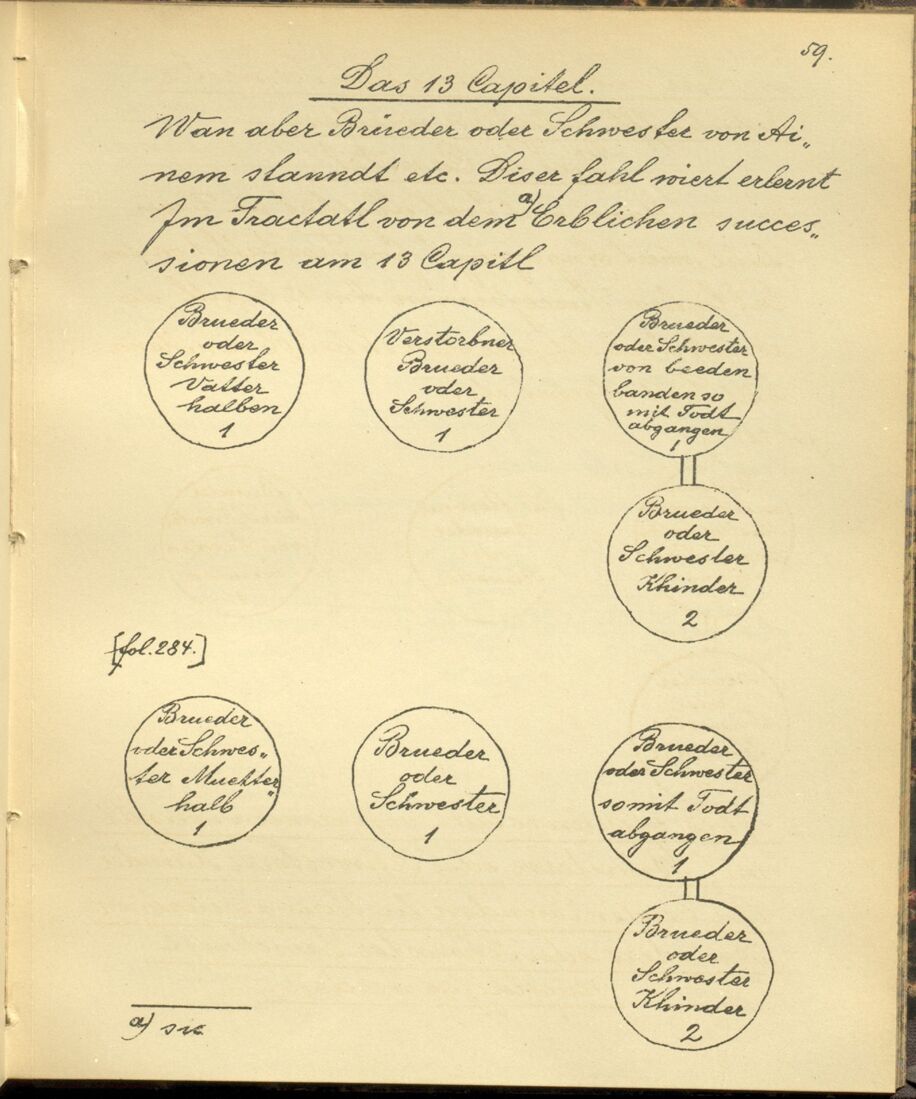 59.
Das 13 Capitel.
Wan aber Brüeder oder Schwester von Ai„
nem stanndt etc. Diser fahl wiert erlernt
Jm Tractatl von dem a) Erblichen succes„
sionen am 13 Capitl
Brueder
oder
Schwester
Vatter
halben
1
Verstorbner
Brueder
oder
Schwester
1
Brueder
oder Schwester
von beeden
banden so
mit Todt
abgangen
1
Brueder
oder
Schwester
Khinder
2
[fol. 284.]
Brueder
oder Schwes„
ter Muetter„
halb
1
Brueder
oder
Schwester
1
Brueder
oder Schwester
so mit Todt
abgangen
1
Brueder
oder
Schwester
Khinder
2
a) sic